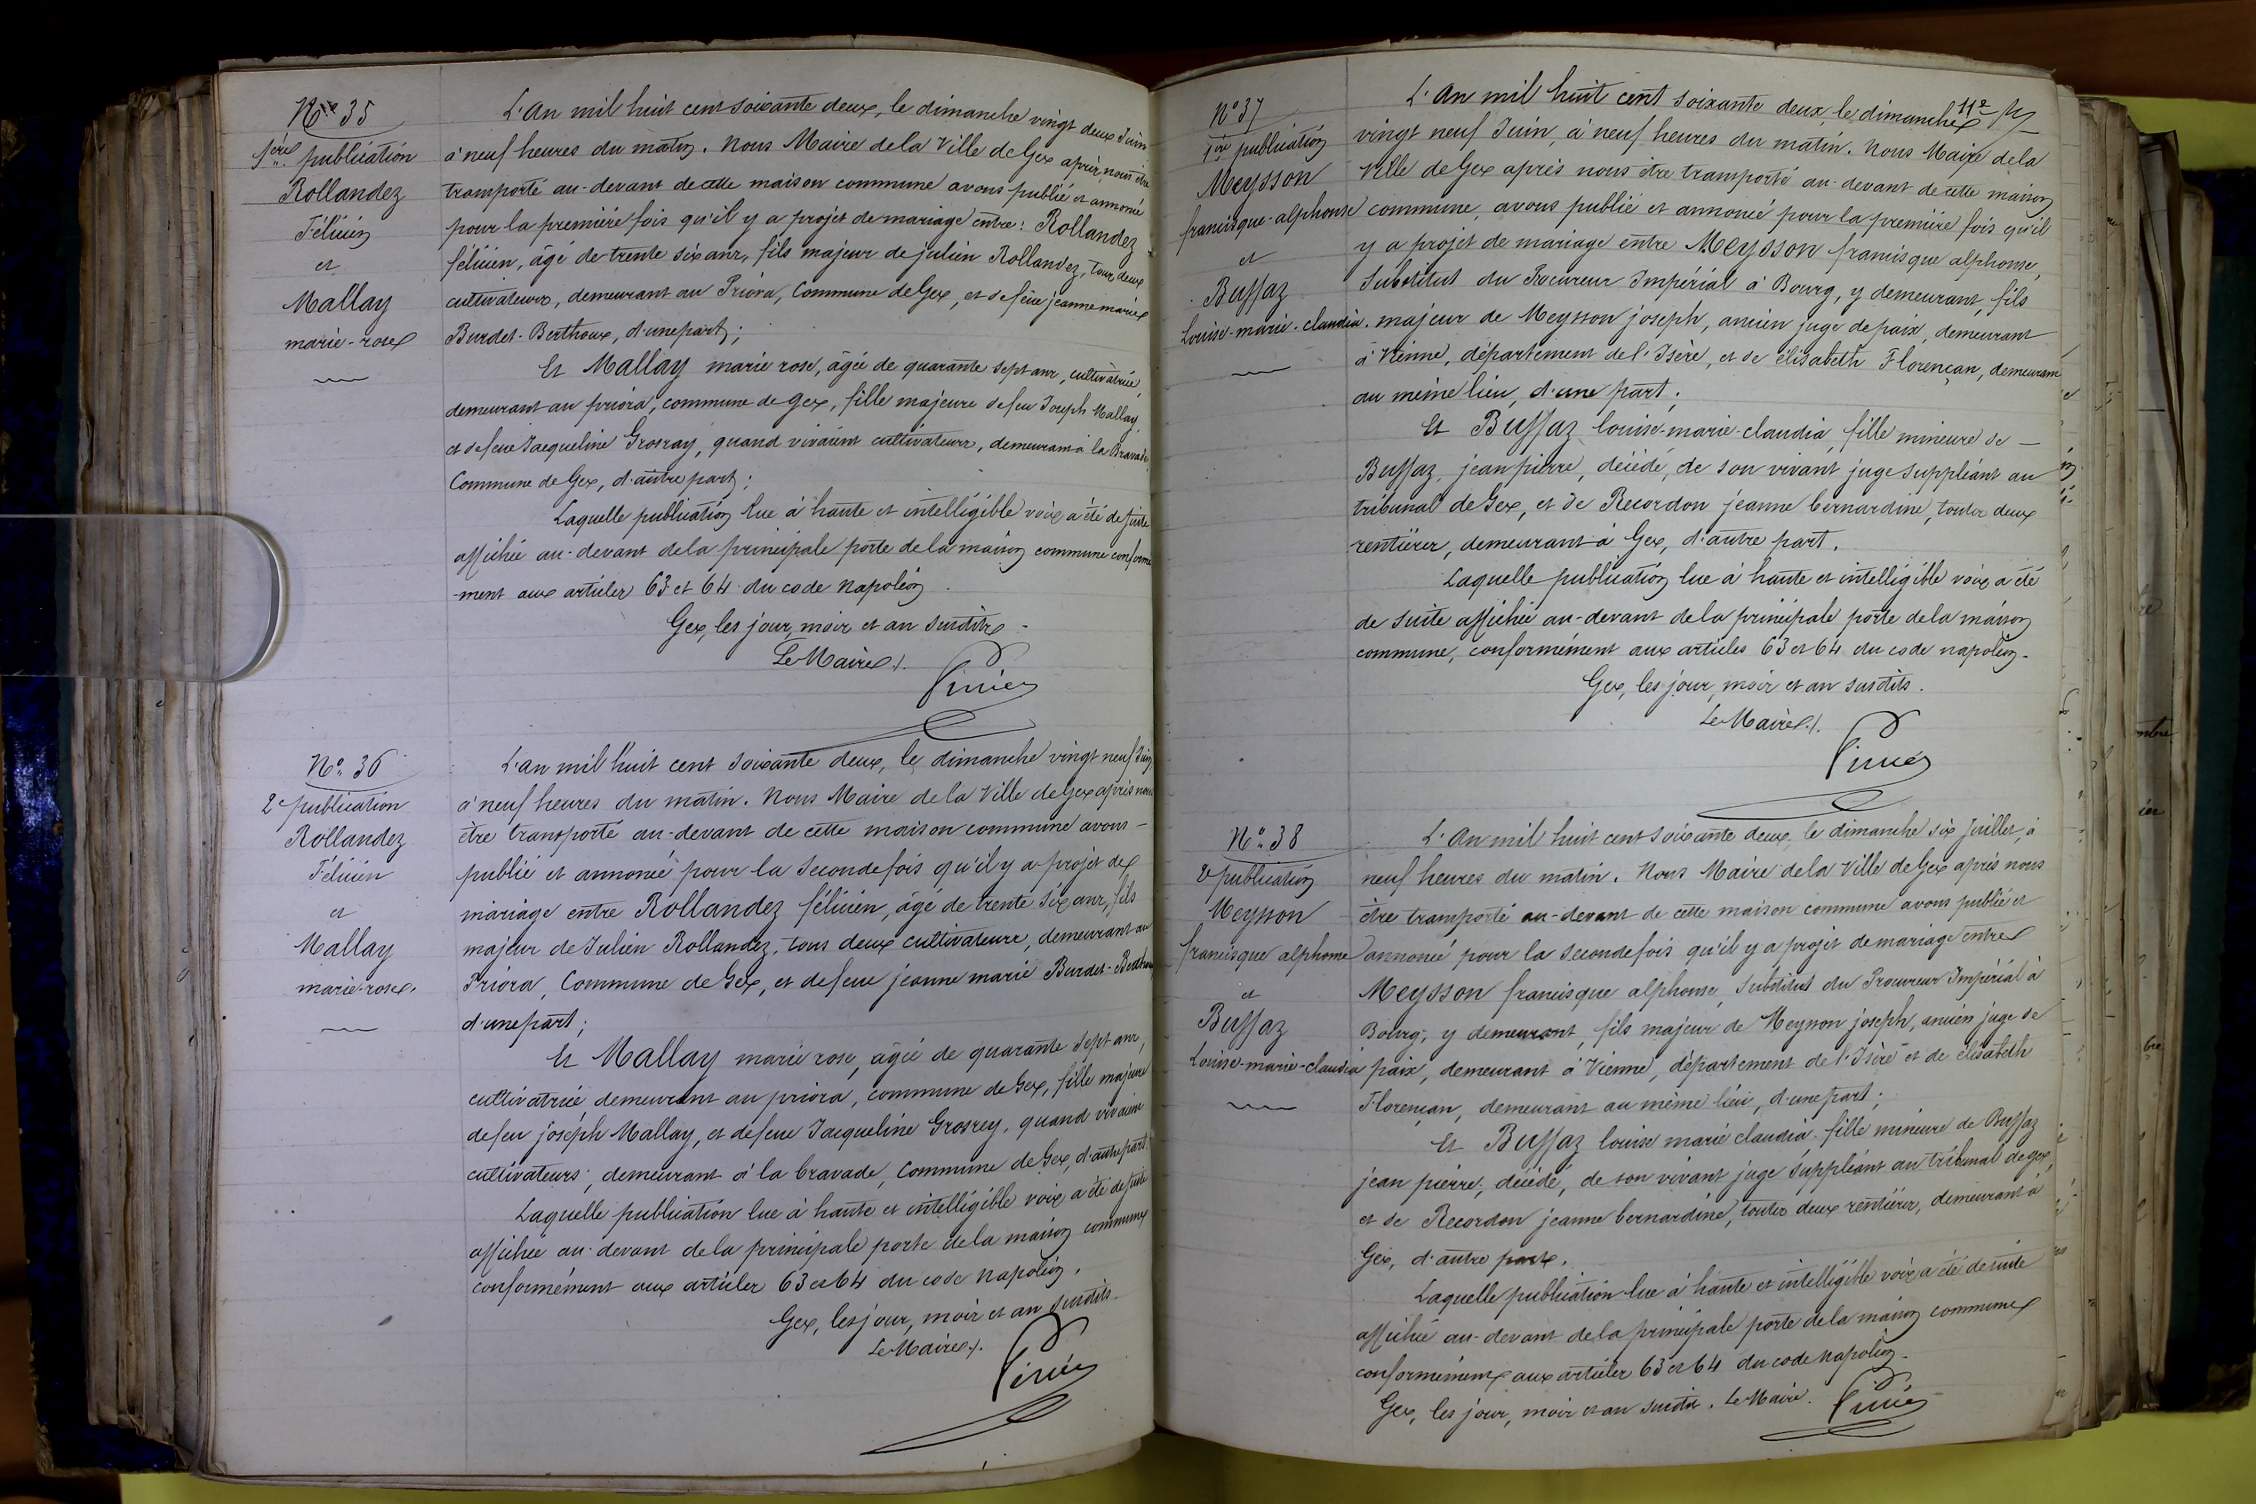 N° 35
1ère publication
Rollandez
Félicien
et
Mallay
marie-rose
L'An mil huit cent soixante deux, le dimanche vingt deux Juin
à neuf heures du matin. Nous Maire de la Ville de Gex après nous être
transporté au-devant de cette maison commune avons publié et annoncé
pour la première fois qu'il y a projet de mariage entre: Rollandez
félicien, âgé de trente six ans, fils majeur de julien Rollandez, tous deux
cultivateurs, demeurant au Priora, Commune de Gex, et de feue jeanne marie
Burdet-Berthoux, d'une part;
Et Mallay marie rose, âgée de quarante sept ans, cultivatrice,
demeurant au priora, commune de Gex, fille majeure de feu Joseph Mallay,
et de feue Jacqueline Grosrey, quand vivaient cultivateurs, demeurant à la Bravade,
Commune de Gex, d'autre part;
Laquelle publication lue à haute et intelligible voix a été de suite
affichée au-devant de la principale porte de la maison commune conformé
-ment aux articles 63 et 64 du code Napoléon.
Gex, les jour, mois et an susdits.
Le Maire
N° 36
2e publication
Rollandez
Félicien
et
Mallay
marie-rose.
L'an mil huit cent soixante deux, le dimanche vingt neuf Juin
à neuf heures du matin. Nous Maire de la Ville de Gex après nous
être transporté au-devant de cette maison commune avons -
publié et annoncé pour la seconde fois qu'il y a projet de
mariage entre Rollandez félicien, âgé de trente six ans, fils
majeur de Julien Rollandez, tous deux cultivateurs, demeurant au
Priora, Commune de Gex, et de feue jeanne marie Burdet-Berthoux
d'une part;
Et Mallay marie rose, âgée de quarante sept ans,
cultivatrice demeurant au priora, commune de Gex, fille majeure
de feu joseph Mallay, et de feue Jacqueline Grosrey, quand vivaient
cultivateurs, demeurant à la bravade, commune de Gex, d'autre part.
Laquelle publication lue à haute et intelligible voix a été de suite
affichée au-devant de la principale porte de la maison commune
conformément aux articles 63 et 64 du code Napoléon.
Gex, les jour, mois et an susdits
Le Maire
11e
N° 37
1ère publication
Meysson
francisque-alphonse
et
Buffaz
Louise-marie-claudia.
L'An mil huit cent soixante deux, le dimanche
vingt neuf Juin, à neuf heures du matin. Nous Maire de la
Ville de Gex après nous être transporté au-devant de cette maison
commune, avons publié et annoncé pour la première fois qu'il
y a projet de mariage entre Meysson francisque alphonse,
Substitut du Procureur Impérial à Bourg, y demeurant, fils
majeur de Meysson joseph, ancien juge de paix, demeurant
à Vienne, département de l'Isère, et de élisabeth Florençan, demeurant
au même lieu, d'une part;
Et Buffaz louise-marie-claudia, fille mineure de -
Buffaz, jean pierre, décédé, de son vivant, juge suppléant au
tribunal de Gex, et de Recordon jeanne bernardine, toutes deux
rentières, demeurant à Gex, d'autre part.
Laquelle publication lue à haute et intelligible voix a été
de suite affichée au-devant de la principale porte de la maison
commune, conformément aux articles 63 et 64 du code napoléon.
Gex, les jour, mois et an susdits.
Le Maire
N° 38
2e publication
Meysson
francisque alphonse
et
Buffaz
Louise-marie-claudia
L'An mil huit cent soixante deux, le dimanche six Juillet, à
neuf heures du matin. Nous Maire de la Ville de Gex après nous
être transporté au-devant de cette maison commune avons publié et
annoncé pour la seconde fois qu'il y a projet de mariage entre
Meysson francisque alphonse, Substitut du Procureur Impérial à
Bourg, y demeurant, fils majeur de Meysson joseph, ancien juge de
paix, demeurant à Vienne, département de l'Isère et de élisabeth
Florençan, demeurant au même lieu, d'une part;
Et Buffaz louise marie claudia, fille mineure de Buffaz
jean pierre, décédé, de son vivant juge suppléant au tribunal de gex,
et de Recordon jeanne bernardine, toutes deux rentières, demeurant à
Gex, d'autre part.
Laquelle publication lue à haute et intelligible voix a été de suite
affichée au-devant de la principale porte de la maison commune
conformément aux articles 63 et 64 du code Napoléon.
Gex, les jour, mois et an susdits. Le Maire.